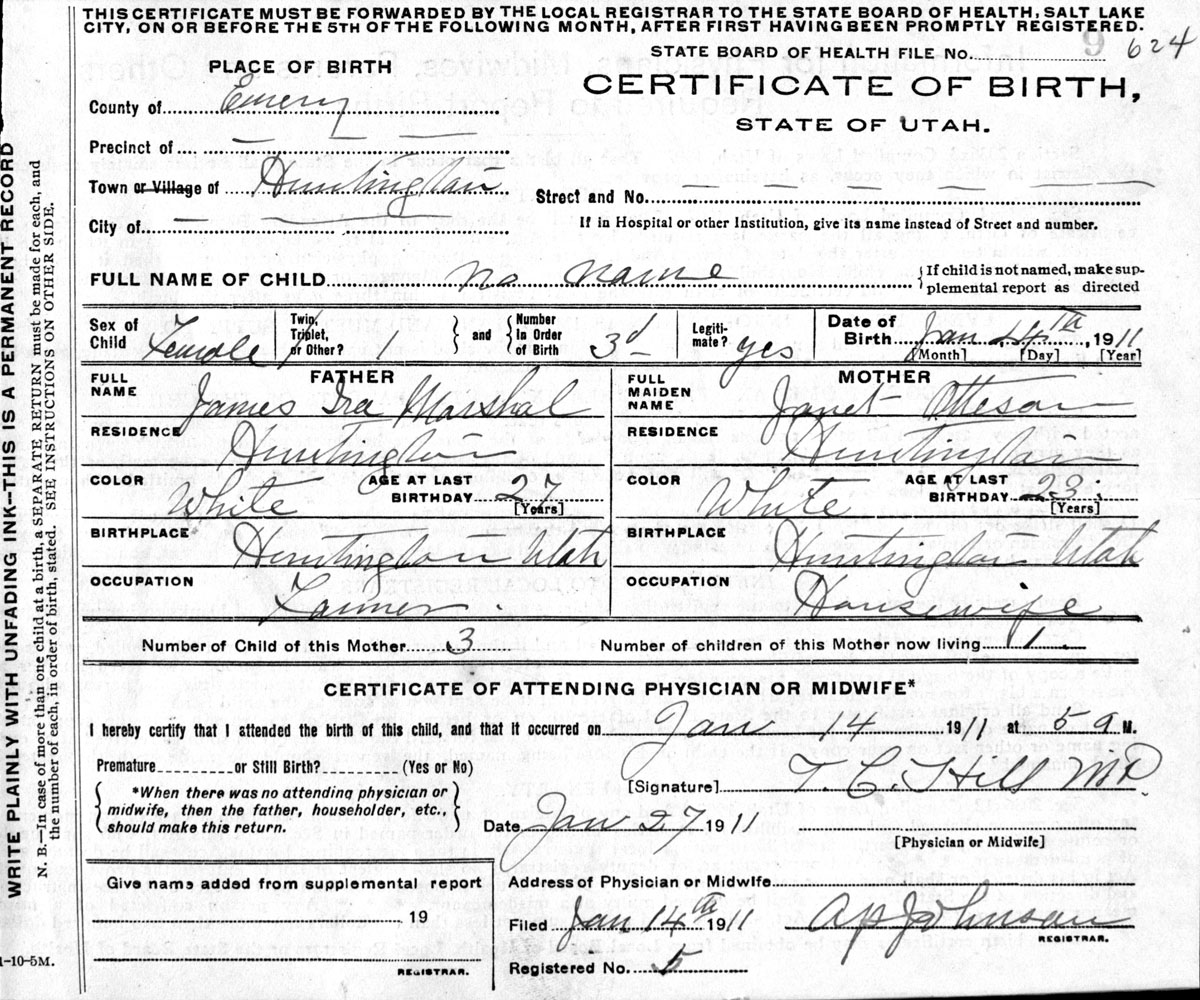 THIS CERTIFICATE MUST BE FORWARDED BY THE LOCAL REGISTRAR TO THE STATE BOARD OF HEALTH, SALT LAKE
CITY, ON OR BEFORE THE 5TH OF THE FOLLOWING MONTH, AFTER FIRST HAVING BEEN PROMPTLY REGISTERED.
STATE BOARD OF HEALTH FILE No. 9 624
PLACE OF BIRTH
CERTIFICATE OF BIRTH,
STATE OF UTAH.
County of Emery
Precinct of — — —
Town or Village of Huntington
Street and No. — — — — — — —
City of — — —
If in Hospital or other Institution, give its name instead of Street and number.
FULL NAME OF CHILD No name
{If child is not named, make sup-
plemental report as directed
Sex of Child Female
Twin, Triplet, or Other? /
} and {
Number In Order of Birth 3d
Legiti- mate? yes
Date of Birth Jan 14th, 1911
[Month] [Day] [Year]
FATHER
FULL NAME James Ira Marshal
RESIDENCE Huntington
COLOR White
AGE AT LAST BIRTHDAY 27
[Years]
BIRTHPLACE Huntington Utah
OCCUPATION Farmer.
MOTHER
FULL MAIDEN NAME Janet Otteson
RESIDENCE Huntington
COLOR White
AGE AT LAST BIRTHDAY 23
[Years]
BIRTHPLACE Huntington Utah
OCCUPATION Housewife
Number of Child of this Mother 3
Number of children of this Mother now living 1.
CERTIFICATE OF ATTENDING PHYSICIAN OR MIDWIFE*
I hereby certify that I attended the birth of this child, and that it occurred on Jan 14 1911 at 5 a M.
Premature or Still Birth? (Yes or No)
[Signature] T. C. Hill MD.
{*When there was no attending physician or
midwife, then the father, householder, etc.,
should make this return.}
Date Jan 27 1911
[Physician or Midwife]
Give name added from supplemental report
, 19
REGISTRAR.
Address of Physician or Midwife
Filed Jan 14th 1911
A P Johnson
REGISTRAR.
Registered No. 5
1-10-5M.
WRITE PLAINLY WITH UNFADING INK--THIS IS A PERMANENT RECORD
N. B.—In case of more than one child at a birth, a SEPARATE RETURN must be made for each, and
the number of each, in order of birth, stated. SEE INSTRUCTIONS ON OTHER SIDE.